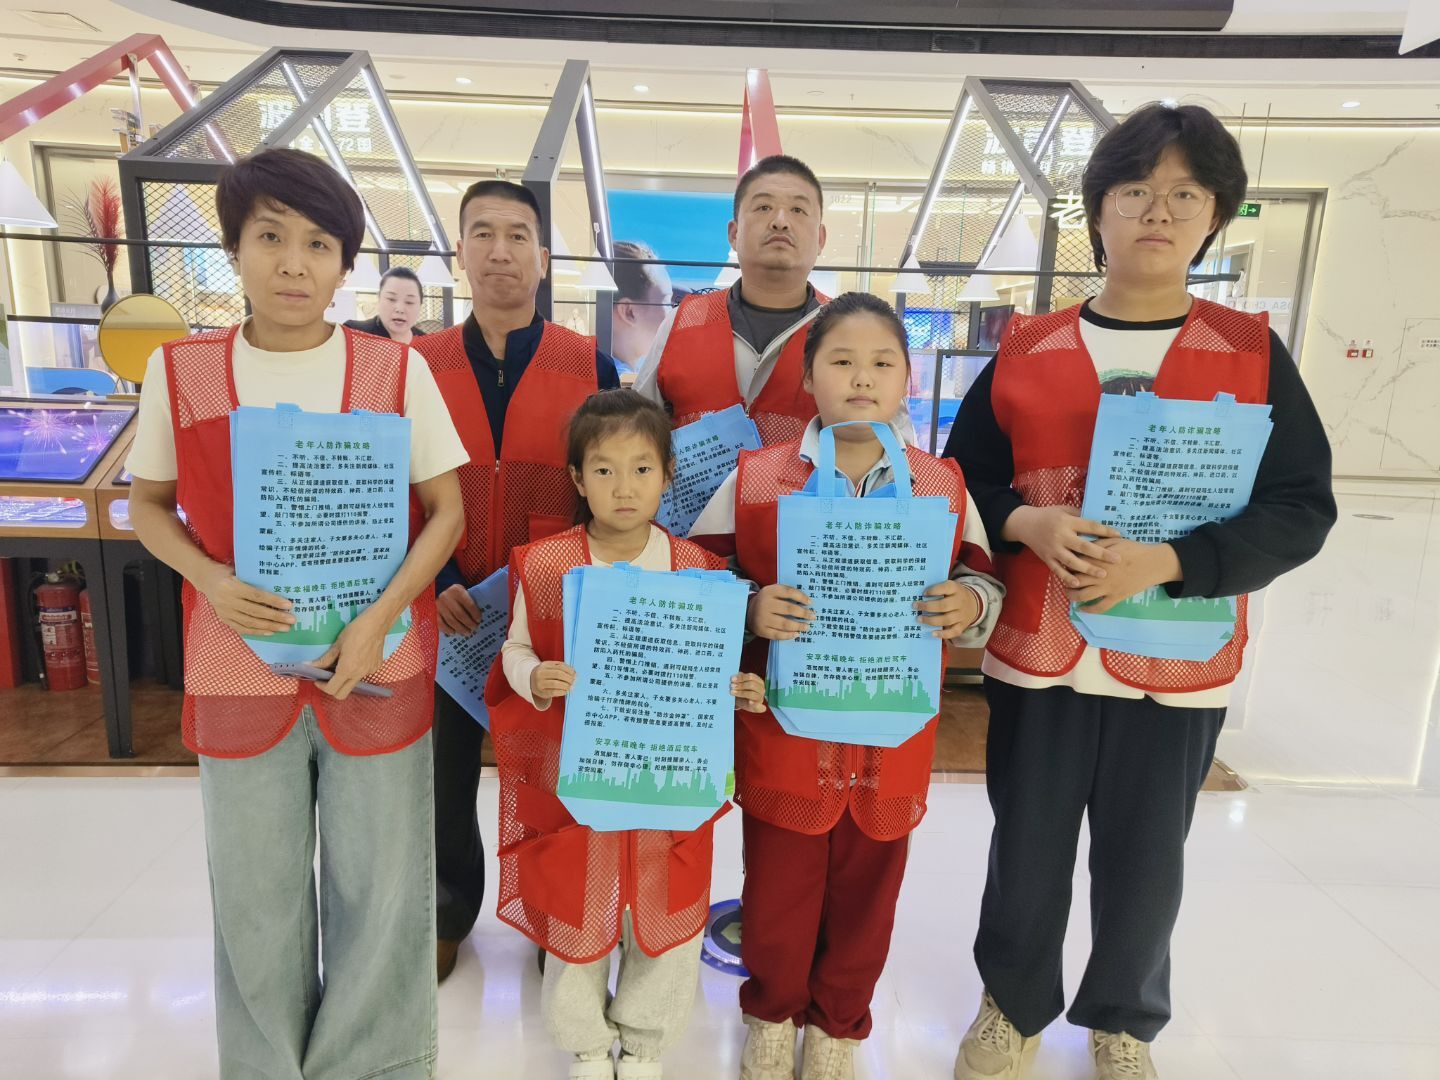 1022
老年人防诈骗攻略
一、不听、不信、不转账、不汇款。
二、提高法治意识、多关注新闻媒体、社区
宣传栏、标语等。
三、从正规渠道获取信息，获取科学的保健
常识，不轻信所谓的特效药、神药、进口药，以
防陷入药托的骗局。
四、警惕上门推销，遇到可疑陌生人经常观
望、敲门等情况，必要时拨打110报警。
五、不参加所谓公司提供的讲座，防止受其
蒙蔽。
六、多关注家人，子女要多关心老人，不要
给骗子打亲情牌的机会。
七、下载安装注册“防诈金钟罩”、国家反
诈中心APP，若有预警信息要提高警惕，及时止
损报案。
安享幸福晚年 拒绝酒后驾车
酒驾醉驾，害人害己！时刻提醒亲人，务必
加强自律，勿存侥幸心理，拒绝酒驾醉驾，平平
安安回家！